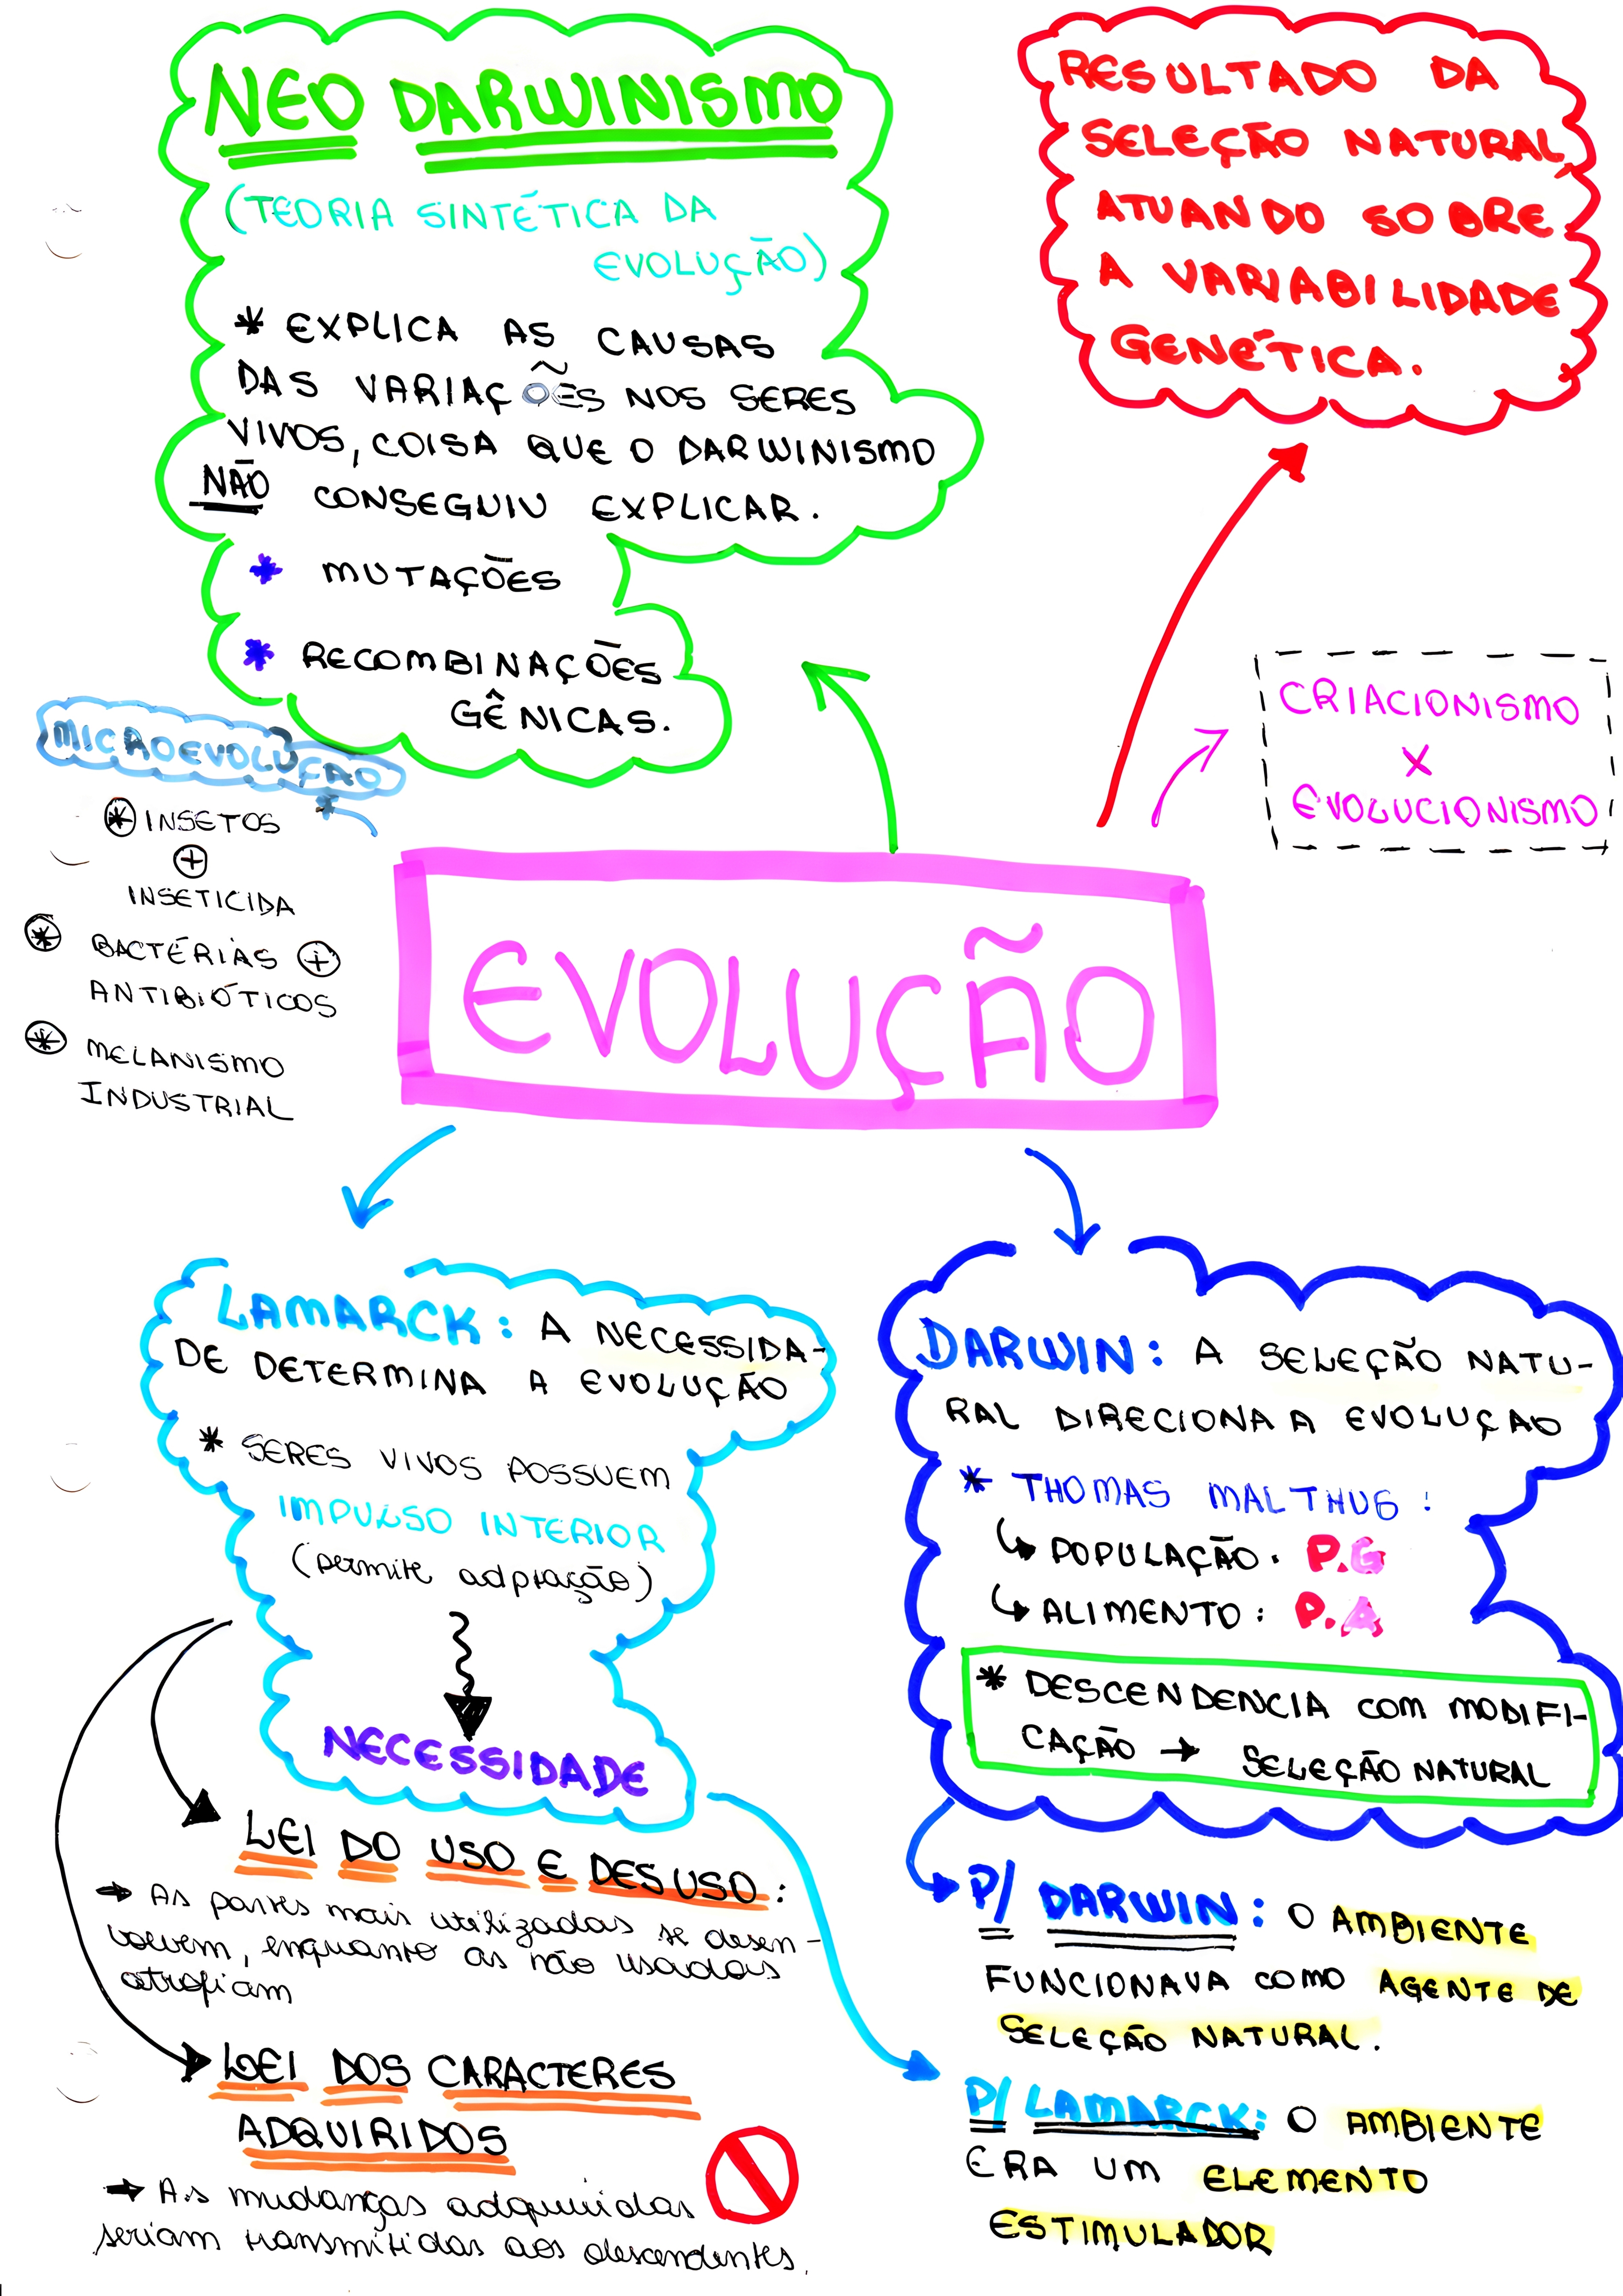 NEO DARWINISMO
(TEORIA SINTÉTICA DA
EVOLUÇÃO)
* EXPLICA AS CAUSAS
DAS VARIAÇÕES NOS SERES
VIVOS, COISA QUE O DARWINISMO
NÃO CONSEGUIU EXPLICAR.
* MUTAÇÕES
* RECOMBINAÇÕES
GÊNICAS.
RESULTADO DA
SELEÇÃO NATURAL
ATUANDO SOBRE
A VARIABILIDADE
GENÉTICA.
CRIACIONISMO
X
EVOLUCIONISMO
MICROEVOLUÇÃO
* INSETOS
+
INSETICIDA
* BACTÉRIAS +
ANTIBIÓTICOS
* MELANISMO
INDUSTRIAL
EVOLUÇÃO
LAMARCK: A NECESSIDA-
DE DETERMINA A EVOLUÇÃO
* SERES VIVOS POSSUEM
IMPULSO INTERIOR
(permite adptação)
NECESSIDADE
LEI DO USO E DESUSO:
→ As partes mais utilizadas se desen-
volvem, enquanto as não usadas
atrofiam
LEI DOS CARACTERES
ADQUIRIDOS
→ As mudanças adquiridas
seriam transmitidas aos descendentes.
DARWIN: A SELEÇÃO NATU-
RAL DIRECIONA A EVOLUÇÃO
* THOMAS MALTHUS:
↳ POPULAÇÃO: P.G
↳ ALIMENTO: P.A
* DESCENDENCIA COM MODIFI-
CAÇÃO → SELEÇÃO NATURAL
P/ DARWIN: O AMBIENTE
FUNCIONAVA COMO AGENTE DE
SELEÇÃO NATURAL.
P/ LAMARCK: O AMBIENTE
ERA UM ELEMENTO
ESTIMULADOR